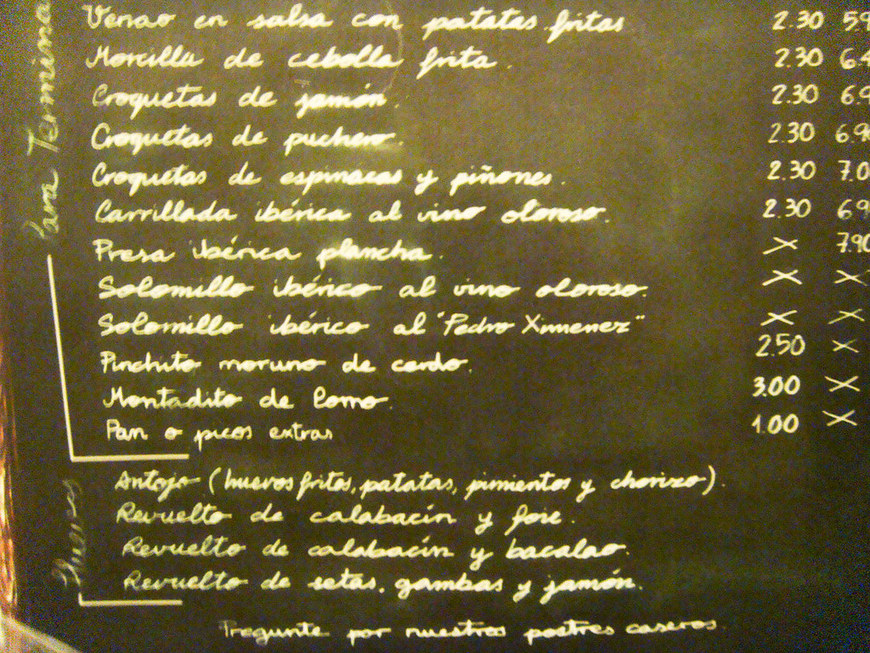 Para Terminar
Venao en salsa con patatas fritas 2.30 5.9
Morcilla de cebolla frita. 2.30 6.4
Croquetas de jamón. 2.30 6.9
Croquetas de puchero. 2.30 6.90
Croquetas de espinacas y piñones. 2.30 7.0
Carrillada ibérica al vino oloroso. 2.30 6.9
Presa ibérica plancha. X 7.90
Solomillo ibérico al vino oloroso. X X
Solomillo ibérico al "Pedro Ximenez" X X
Pinchito moruno de cerdo. 2.50 X
Montadito de lomo. 3.00 X
Pan o picos extras 1.00 X
Huevos
Antojo (huevos fritos, patatas, pimientos y chorizo).
Revuelto de calabacín y foie.
Revuelto de calabacín y bacalao.
Revuelto de setas, gambas y jamón.
Pregunte por nuestros postres caseros.